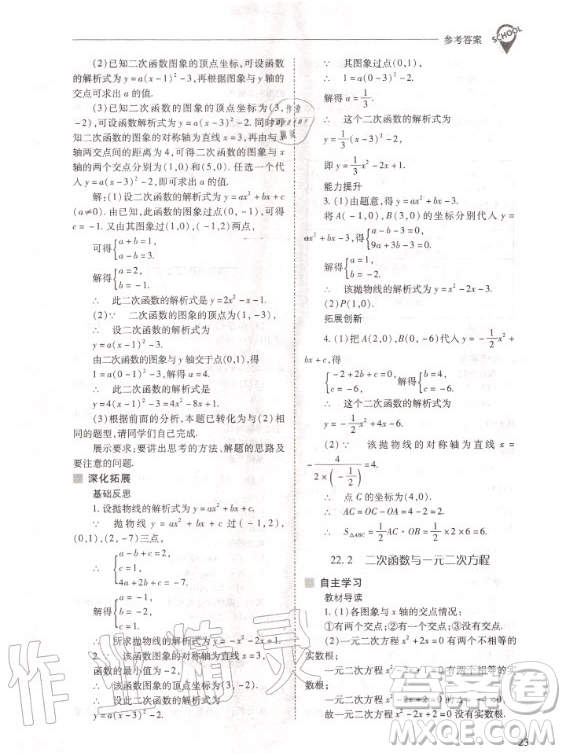 参考答案
SCHOOL
(2)已知二次函数图象的顶点坐标,可设函数
的解析式为 y=a(x-1)²-3,再根据图象与 y 轴的
交点可求出 a 的值.
(3)已知二次函数的图象的顶点坐标为(3,
-2),可设函数解析式为 y=a(x-3)²-2.同时
二次函数的图象的对称轴为直线 x=3,由图象与 x
轴两交点间的距离为 4,可得二次函数图象与 x
轴的两个交点分别为(1,0)和(5,0).任选一个代
入 y=a(x-3)²-2,即可求出 a 的值.
解:(1)设二次函数的解析式为 y=ax²+bx+c
(a≠0).由已知,此函数图象过点(0,-1),可得
c=-1.又由其图象过(1,0),(-1,2)两点,
可得{a+b=1,
a-b=3.
解得{a=2,
b=-1.
∴ 此二次函数的解析式是 y=2x²-x-1.
(2)∵ 二次函数的图象的顶点为(1,-3),
∴ 设二次函数的解析式为
y=a(x-1)²-3.
由二次函数的图象与 y 轴交于点(0,1),得
1=a(0-1)²-3,解得 a=4.
∴ 此二次函数的解析式是
y=4(x-1)²-3=4x²-8x+1.
(3)根据前面的分析,本题已转化为与(2)相
同的题型,请同学们自己完成.
展示要求:要讲出思考的方法、解题的思路及
要注意的问题.
深化拓展
基础反思
1.设抛物线的解析式为 y=ax²+bx+c.
∵ 抛物线 y=ax²+bx+c 过(-1,2),
(0,1),(2,-7)三点,
∴ {a-b+c=2,
c=1,
4a+2b+c=-7.
解得
∴ 所求抛物线的解析式为 y=-x²-2x+1.
2.∵ 该函数图象的对称轴为直线 x=3,
函数的最小值为-2,
∴ 该函数图象的顶点坐标为(3,-2).
∴ 设该二次函数的解析式为
y=a(x-3)²-2(a≠0).
∵ 其图象过点(0,1),
∴ 1=a(0-3)²-2.
解得 a=1/3.
∴ 这个二次函数的解析式为
y=1/3(x-3)²-2,
即 y=1/3x²-2x+1.
能力提升
3.(1)由题意,得 c=-3.
将 A(-1,0),B(3,0)的坐标分别代入 y=
ax²+bx-3,得{a-b-3=0,
9a+3b-3=0.
解得{a=1,
b=-2.
∴ 该抛物线的解析式为 y=x²-2x-3.
(2)P(1,0).
拓展创新
4.(1)把 A(2,0),B(0,-6)代入 y=-1/2x²+
bx+c,得
{-2+2b+c=0,
c=-6.
解得{b=4,
c=-6.
∴ 这个二次函数的解析式为
y=-1/2x²+4x-6.
(2)∵ 该抛物线的对称轴为直线 x=
-4/(2×(-1/2))=4,
∴ 点 C 的坐标为(4,0).
∴ AC=OC-OA=4-2=2.
∴ S△ABC=1/2AC·OB=1/2×2×6=6.
22.2 二次函数与一元二次方程
自主学习
教材导读
1.(1)各图象与 x 轴的交点情况:
①有两个交点;②有一个交点;③没有交点.
(2)一元二次方程 x²+2x=0 有两个不相等的
实数根;
一元二次方程 x²-2x+1=0 有两个相等的实
数根;
一元二次方程 x²-2x+2=0
故一元二次方程 x²-2x+2=0 没有实数根.
23
作业精灵